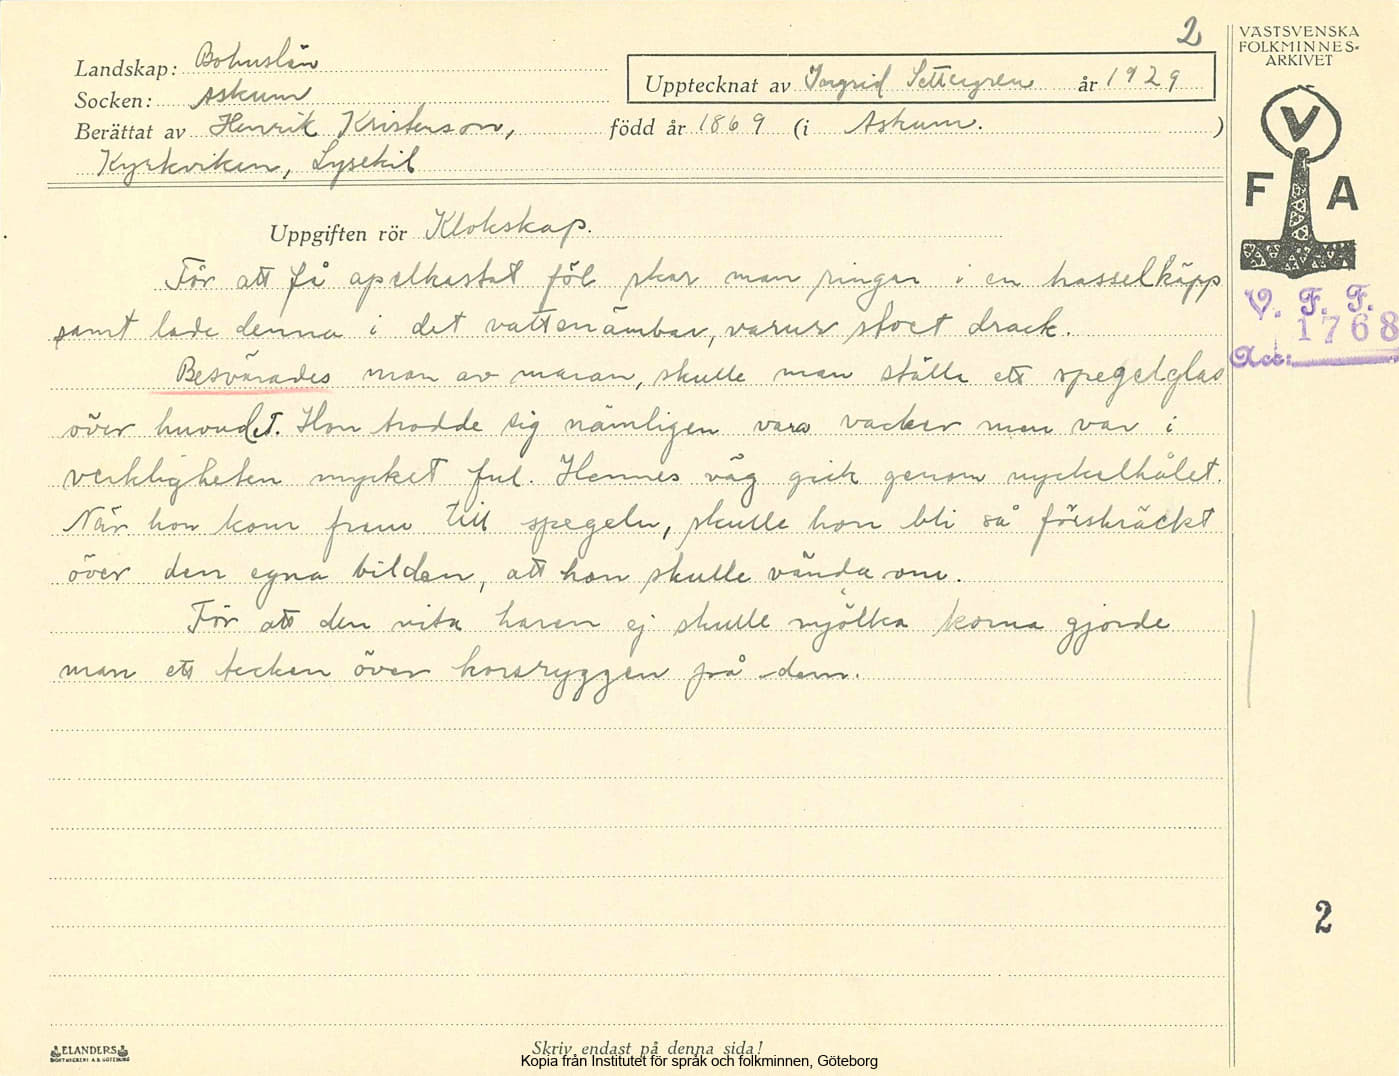 2
VÄSTSVENSKA
FOLKMINNES-
ARKIVET
Landskap: Bohuslän
Upptecknat av Ingrid Settergren år 1929
Socken: Askum
Berättat av Henrik Kristenson, född år 1869 (i Askum. )
Kyrkviken, Lysekil
V
F A
Uppgiften rör Klokskap.
För att få apelkastat föl skar man ringar i en hasselkäpp
samt lade denna i det vattenämbar, varur stoet drack.
V. F. F.
1768
Acc:
Besvärades man av maran, skulle man ställa ett spegelglas
över huvudet. Hon trodde sig nämligen vara vacker men var i
verkligheten mycket ful. Hennes väg gick genom nyckelhålet.
När hon kom fram till spegeln, skulle hon bli så förskräckt
över den egna bilden, att hon skulle vända om.
För att den vita haren ej skulle mjölka korna gjorde
man ett tecken över korsryggen på dem.
2
ELANDERS
BOKTRYCKERI A.B. GÖTEBORG
Skriv endast på denna sida!
Kopia från Institutet för språk och folkminnen, Göteborg